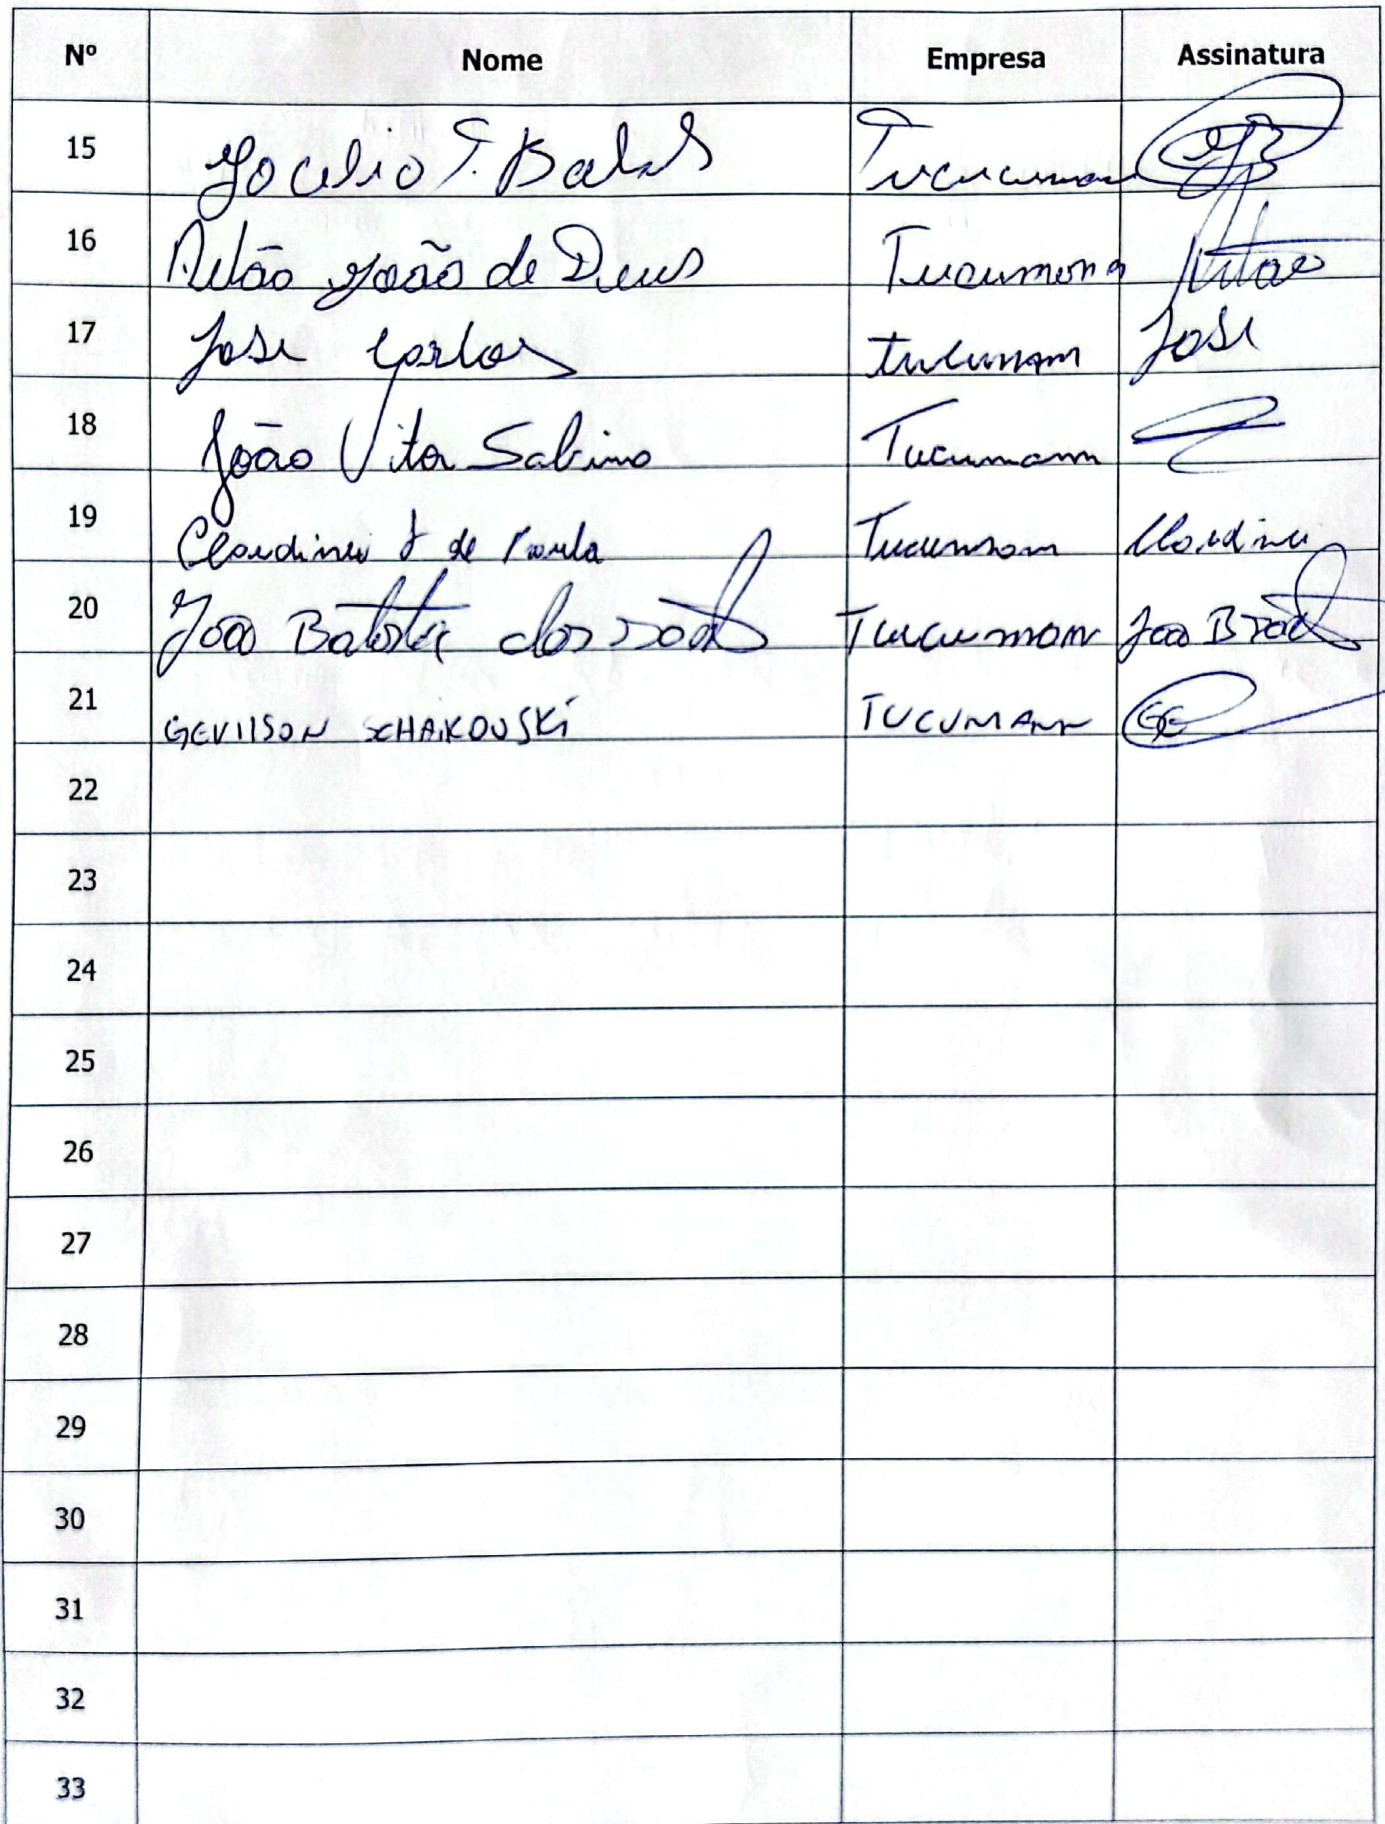 Nº Nome Empresa Assinatura
15 Jocelio F. Tucuman
16 João de Deus Tucumann
17 Jose Carlos tucumam Jose
18 João Vitor Sabino Tucumann
19 Claudinei J de Paula Tucumam Claudinei
20 João Batista dos Tucumam João B
21 GEVILSON SCHAIKOUSKi TUCUMANN
22
23
24
25
26
27
28
29
30
31
32
33